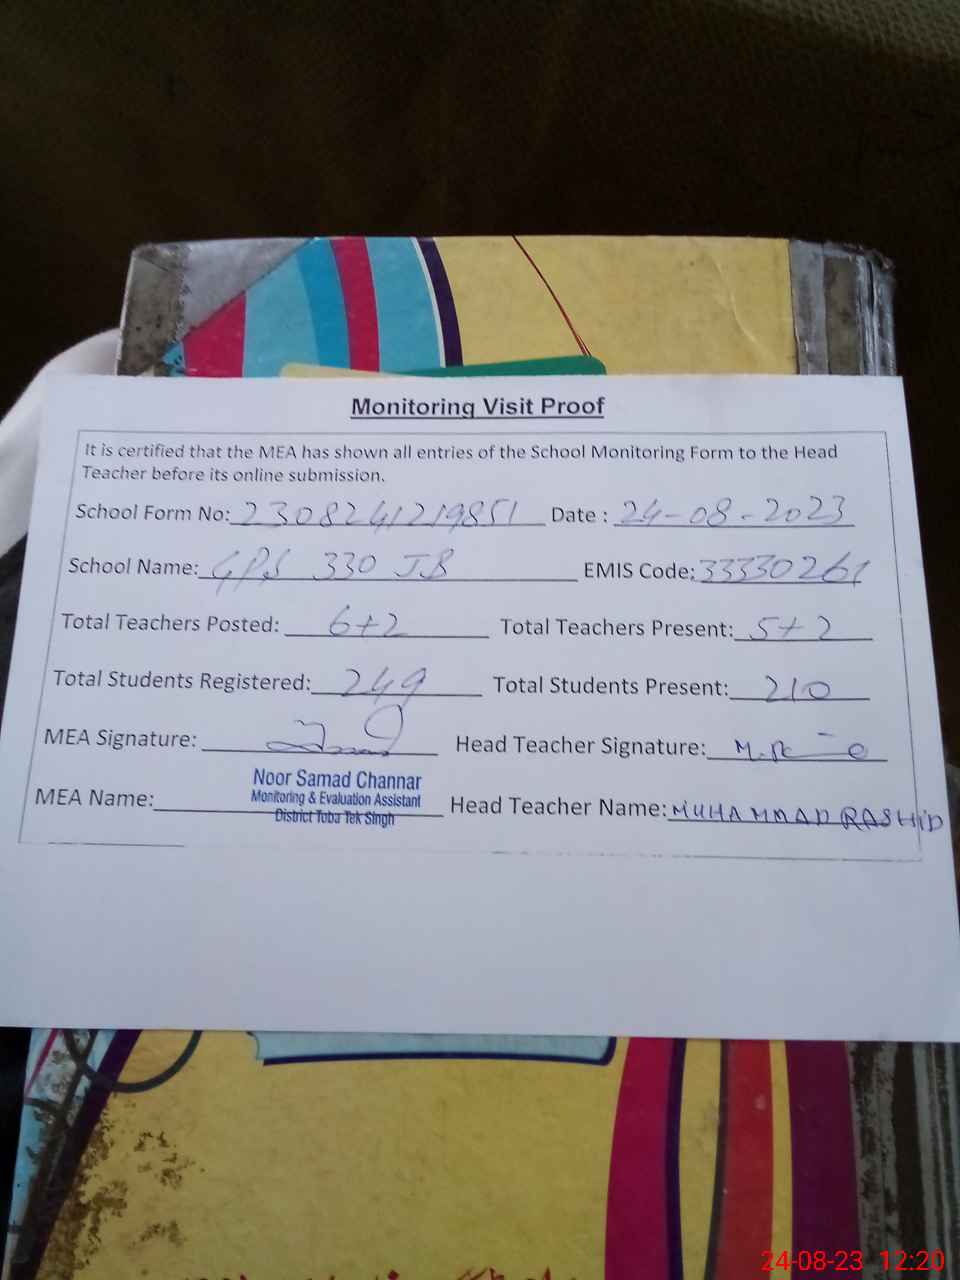 Monitoring Visit Proof
It is certified that the MEA has shown all entries of the School Monitoring Form to the Head
Teacher before its online submission.
School Form No: 2308241219851 Date : 24-08-2023
School Name: GPS 330 JB EMIS Code: 33330261
Total Teachers Posted: 6+2 Total Teachers Present: 5+2
Total Students Registered: 249 Total Students Present: 210
MEA Signature: Head Teacher Signature:
Noor Samad Channar
Monitoring & Evaluation Assistant
District Toba Tek Singh
MEA Name: Head Teacher Name: MUHAMMAD RASHID
24-08-23 12:20